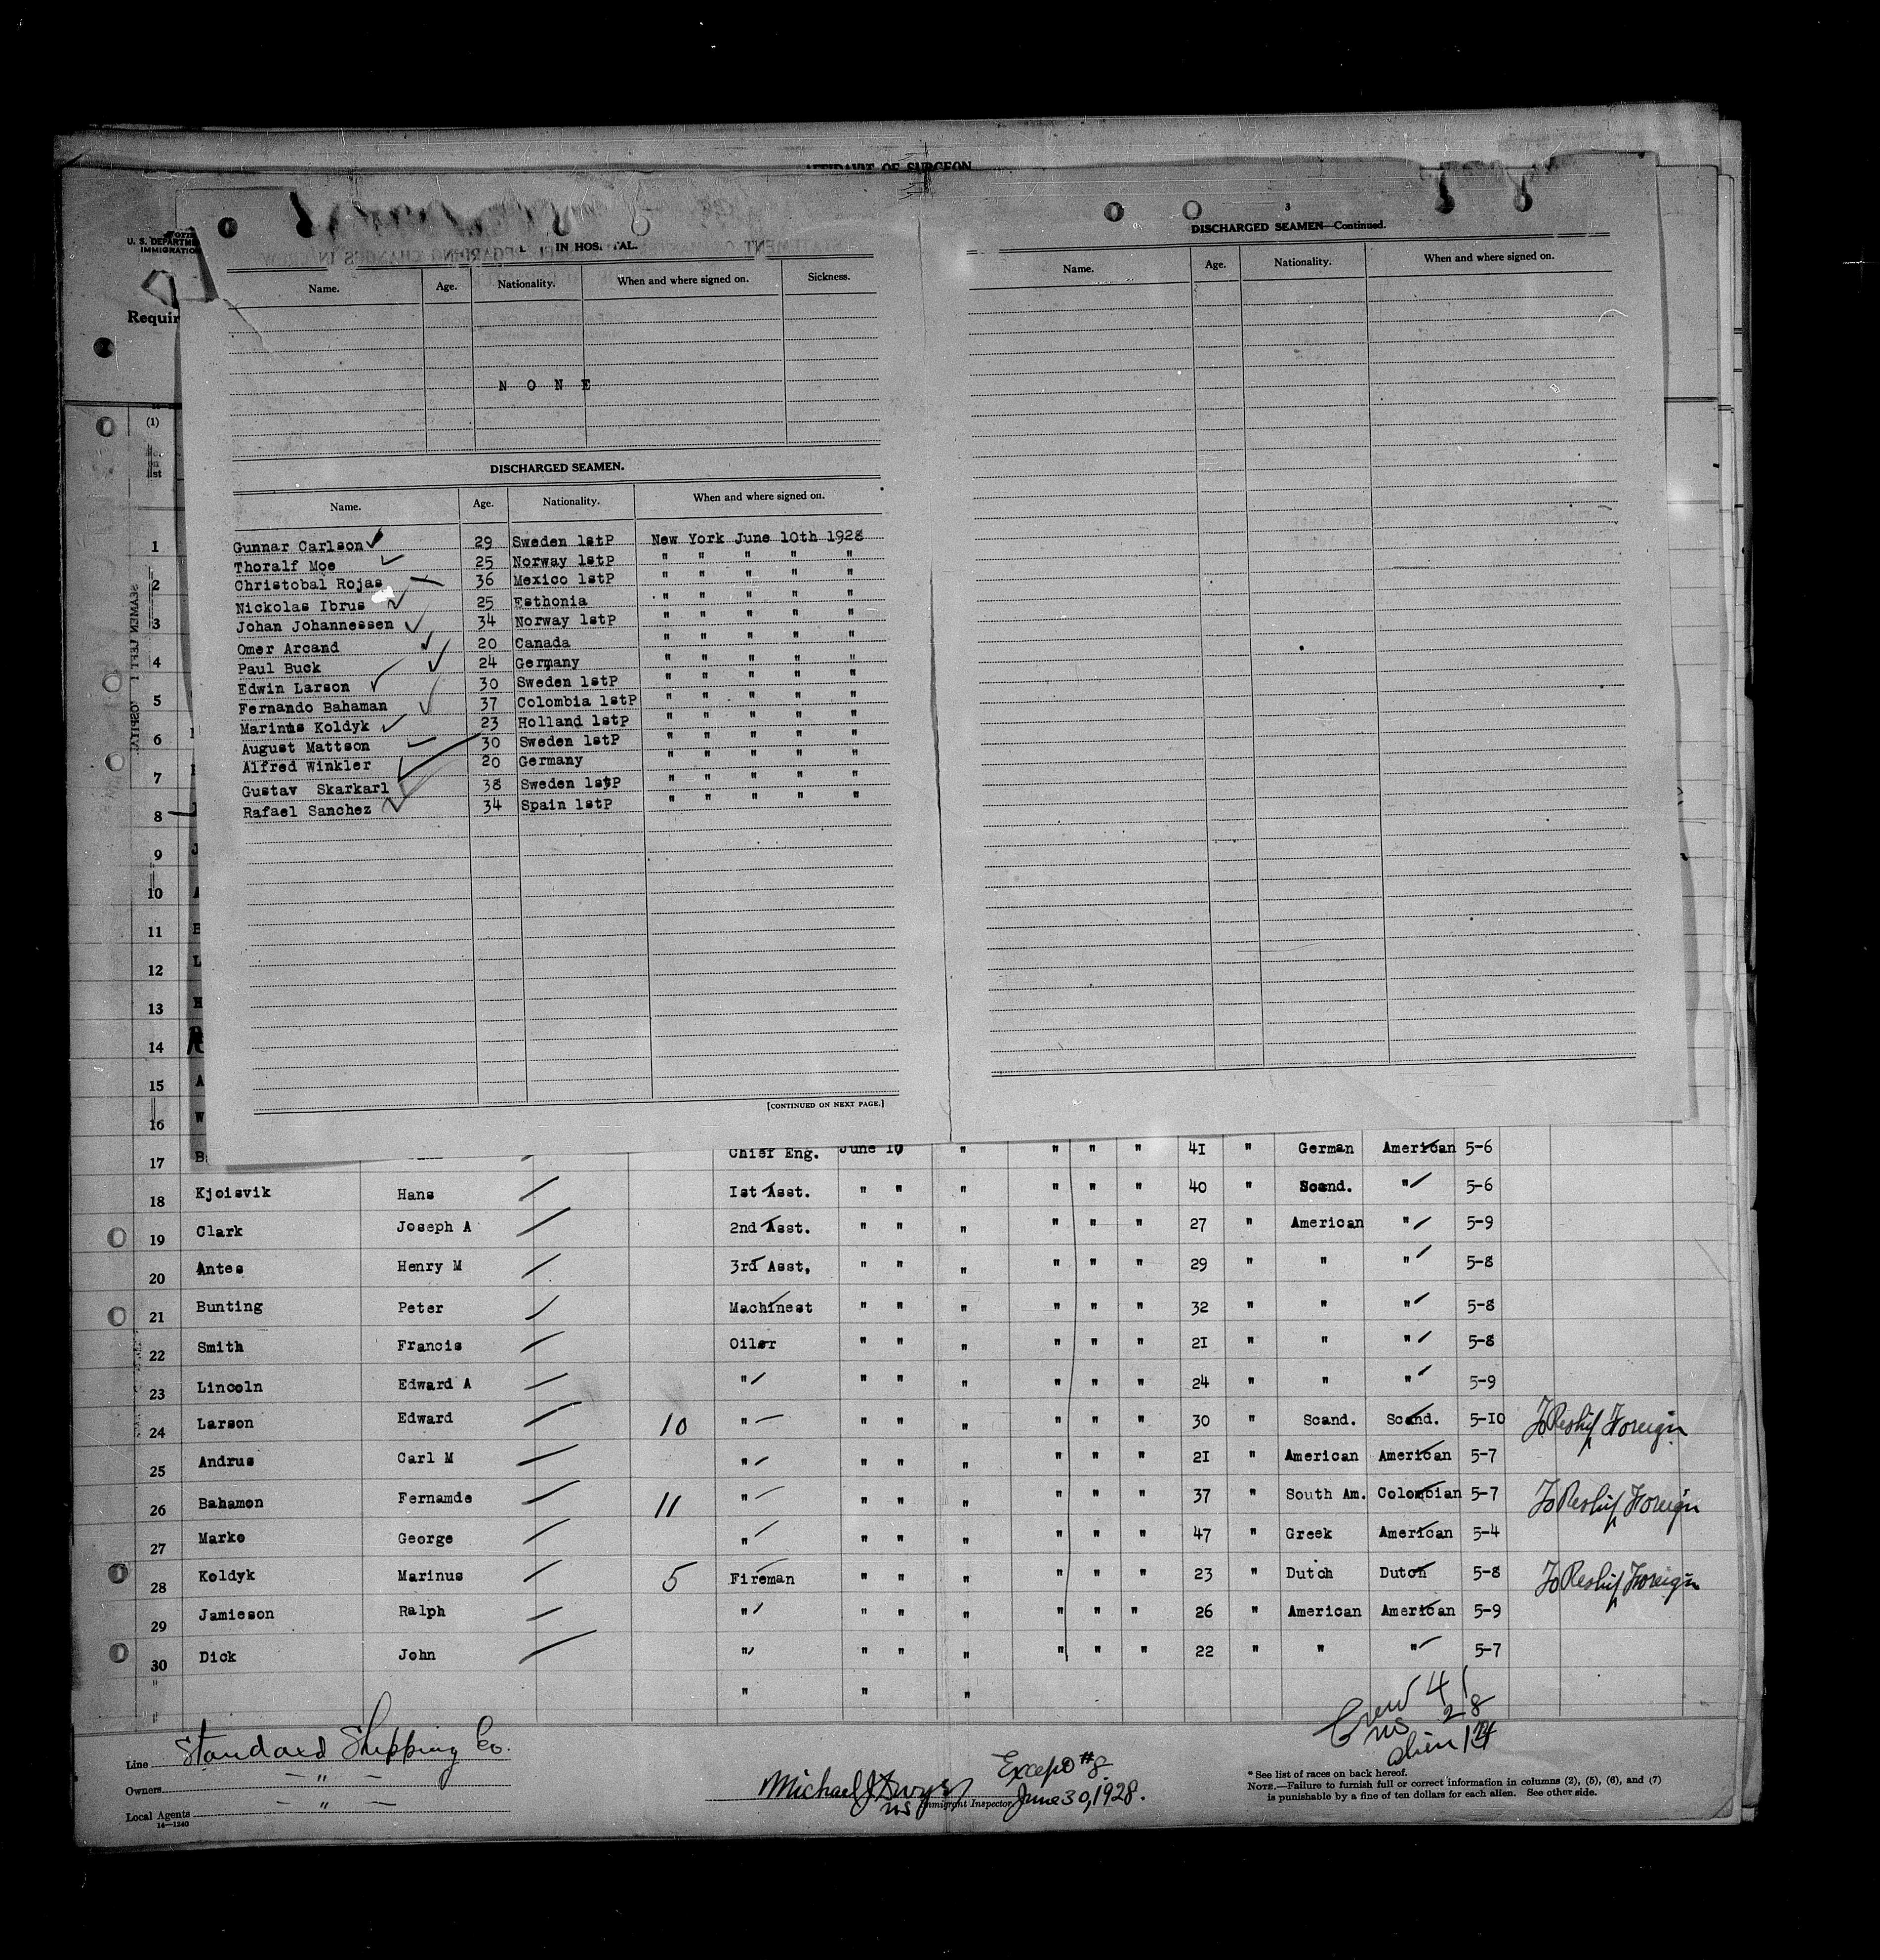 AFFIDAVIT OF SURGEON
U. S. DEPARTM
IMMIGRATION
Requir
IN HOS TAL.
Name. Age. Nationality. When and where signed on. Sickness.
N O N E
DISCHARGED SEAMEN.
Name. Age. Nationality. When and where signed on.
Gunnar Carlson 29 Sweden 1stP New York June 10th 1928
Thoralf Moe 25 Norway 1stP " " " " "
Christobal Rojas 36 Mexico 1stP " " " " "
Nickolas Ibrus 25 Esthonia " " " " "
Johan Johannessen 34 Norway 1stP " " " " "
Omer Arcand 20 Canada " " " " "
Paul Buck 24 Germany " " " " "
Edwin Larson 30 Sweden 1stP " " " " "
Fernando Bahaman 37 Colombia 1stP " " " " "
Marinus Koldyk 23 Holland 1stP " " " " "
August Mattson 30 Sweden 1stP " " " " "
Alfred Winkler 20 Germany " " " " "
Gustav Skarkarl 38 Sweden 1stP " " " " "
Rafael Sanchez 34 Spain 1stP " " " " "
[CONTINUED ON NEXT PAGE.]
3
DISCHARGED SEAMEN—Continued.
Name. Age. Nationality. When and where signed on.
(1)
list
1
2
3
4
5
6
7
8
9
10
11
12
13
14
15
16
17 Chief Eng. June 10 " " " " 41 " German American 5-6
18 Kjoisvik Hans 1st Asst. " " " " " " 40 " Scand. " 5-6
19 Clark Joseph A 2nd Asst. " " " " " " 27 " American " 5-9
20 Antes Henry M 3rd Asst. " " " " " " 29 " " " 5-8
21 Bunting Peter Machinest " " " " " " 32 " " " 5-8
22 Smith Francis Oiler " " " " " " 21 " " " 5-8
23 Lincoln Edward A " " " " " " " 24 " " " 5-9
24 Larson Edward 10 " " " " " " " 30 " Scand. Scand. 5-10 To Reship Foreign
25 Andrus Carl M " " " " " " " 21 " American American 5-7
26 Bahamon Fernamde 11 " " " " " " " 37 " South Am. Colombian 5-7 To Reship Foreign
27 Marko George " " " " " " " 47 " Greek American 5-4
28 Koldyk Marinus 5 Fireman " " " " " " 23 " Dutch Dutch 5-8 To Reship Foreign
29 Jamieson Ralph " " " " " " " 26 " American American 5-9
30 Dick John " " " " " " " 22 " " " 5-7
" " "
Crew 41
US 28
alien 14
Line Standard Shipping Co.
Owners — " —
Local Agents — " —
14—1240
Except #8
Michael J
Immigrant Inspector. June 30, 1928.
* See list of races on back hereof.
NOTE.—Failure to furnish full or correct information in columns (2), (5), (6), and (7)
is punishable by a fine of ten dollars for each alien. See other side.